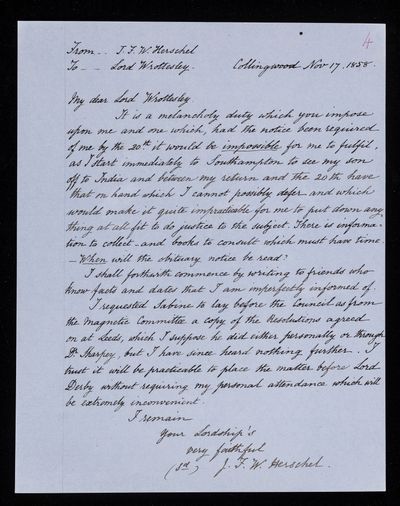 4
From - - J. F. W. Herschel
To - - Lord Wrottesley.
Collingwood Nov 17. 1858.
My dear Lord Wrottesley.
It is a melancholy duty which you impose
upon me and one which, had the notice been required
of me by the 20th it would be impossible for me to fulfil.
as I start immediately to Southampton to see my son
off to India and between my return and the 20th have
that on hand which I cannot possibly defer and which
would make it quite impracticable for me to put down any
thing at all fit to do justice to the subject. There is informa-
tion to collect - and books to consult which must have time.
- When will the obituary notice be read?
I shall forthwith commence by writing to friends who
know facts and dates that I am imperfectly informed of.
I requested Sabine to lay before the Council as from
the Magnetic Committee a copy of the Resolutions agreed
on at Leeds, which I suppose he did either personally or through
Dr. Sharpey, but I have since heard nothing further. I
trust it will be practicable to place the matter before Lord
Derby without requiring my personal attendance which will
be extremely inconvenient.
I remain
your Lordship's
very faithful
(Sd) J. F. W. Herschel.